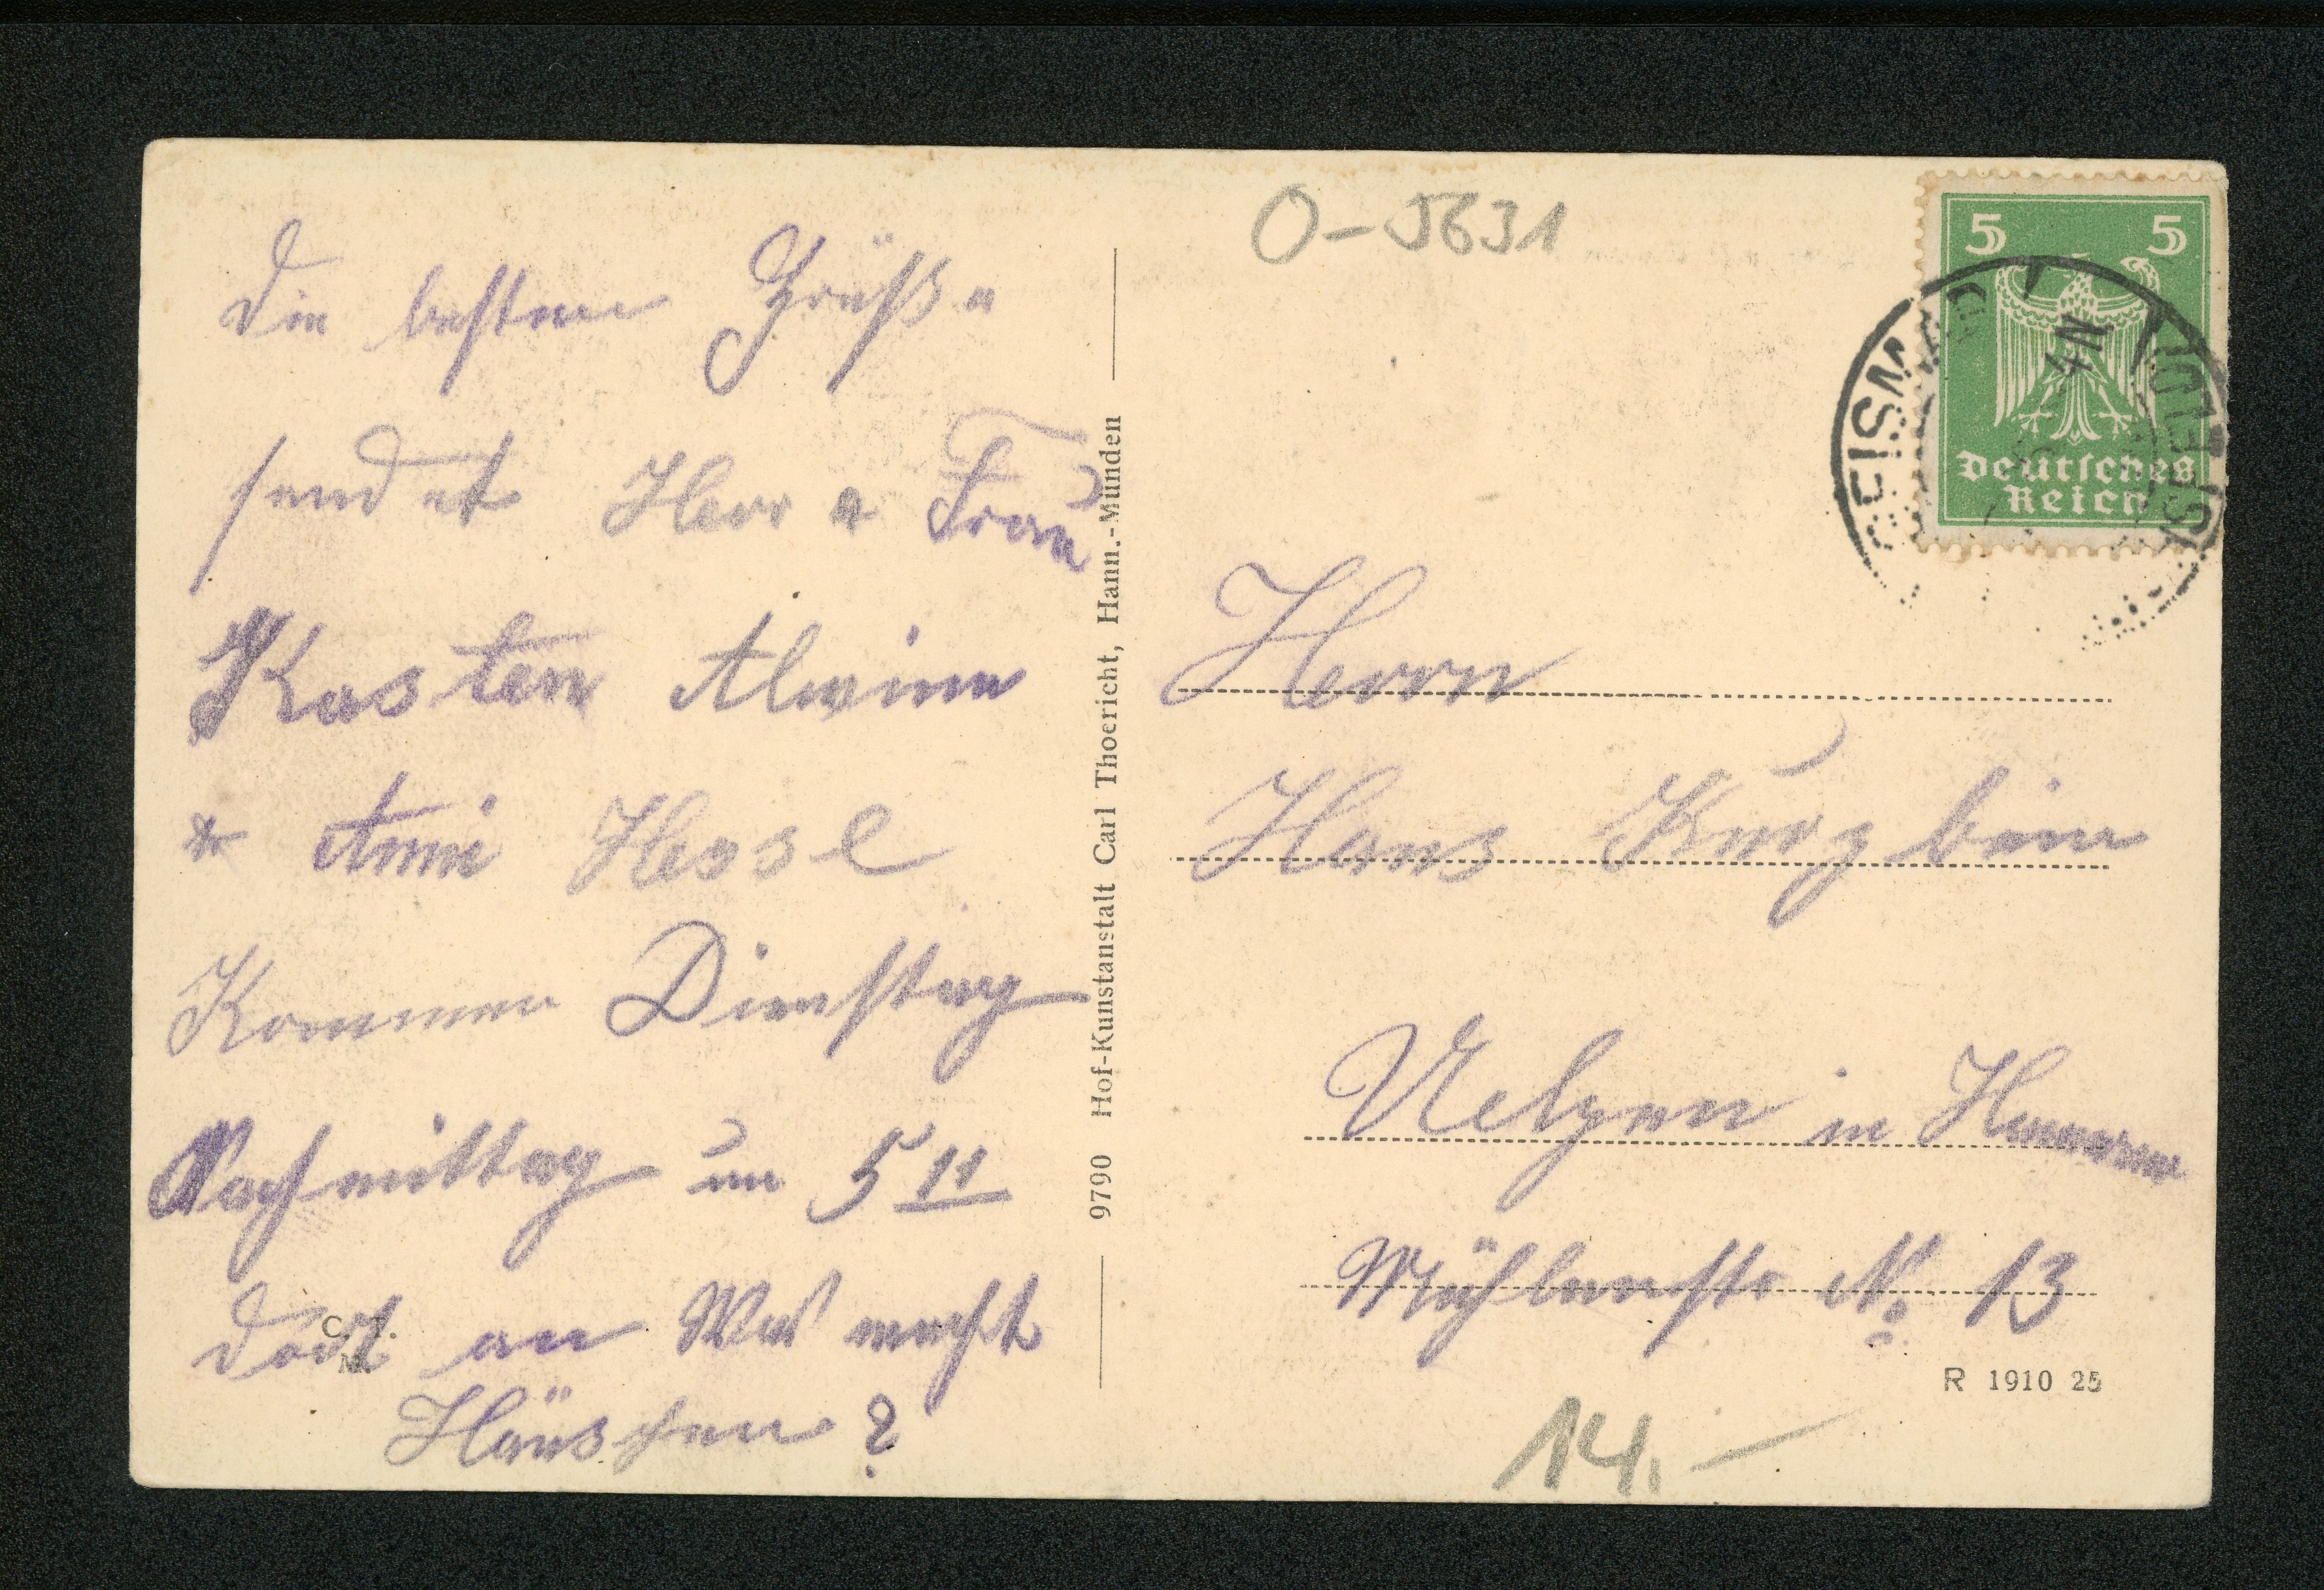 Die besten Grüße
sendet Herr u Frau
Kasten Alwine
u Anni Hesse
Kommen Dienstag
Nachmittag um 5 11
dort an Was macht
Hänschen?
C. T.
M.
9790 Hof-Kunstanstalt Carl Thoericht, Hann.-Münden
O-5631
5 5
Deutsches
Reich
4N
Herrn
Hans
Uelzen in Hannover
Mühlenstr No 13
R 1910 25
14.-